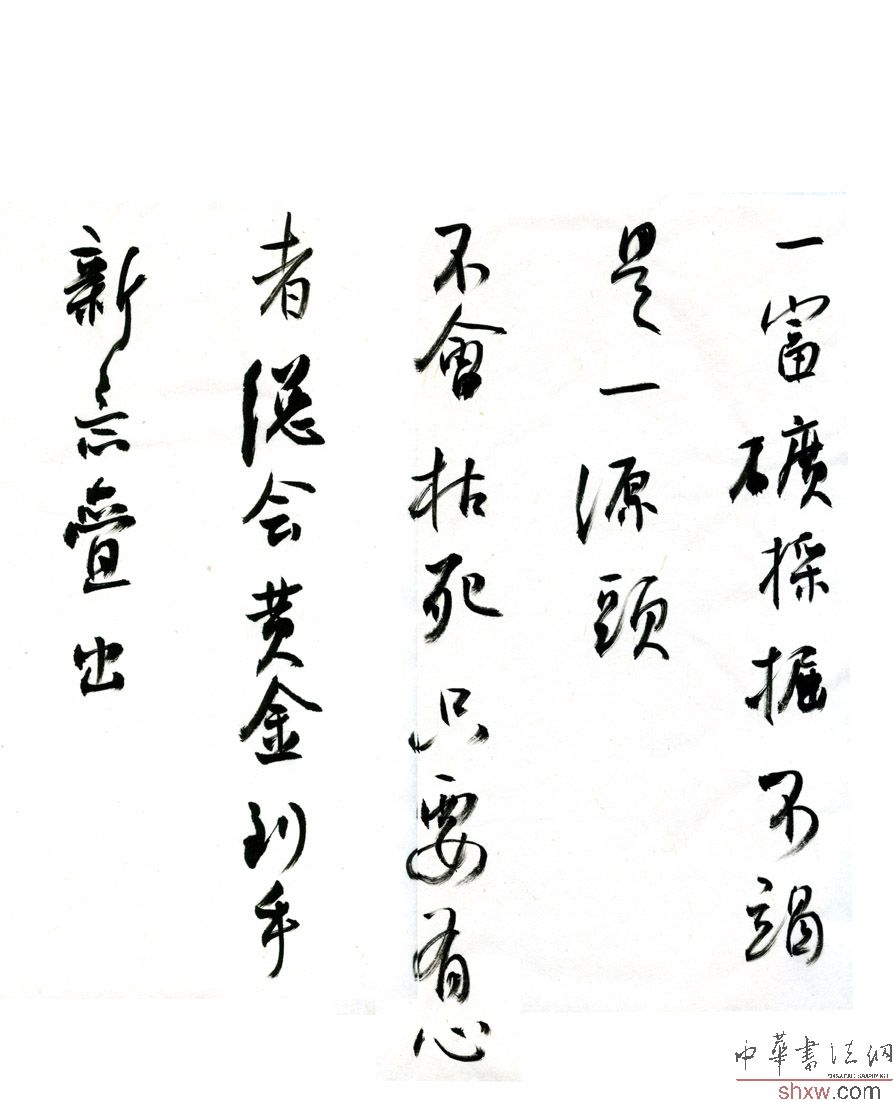 一富礦採掘不竭
是一源頭
不會枯死只要有心
者總会黄金到手
新意疊出
中華書法網
shxw.com